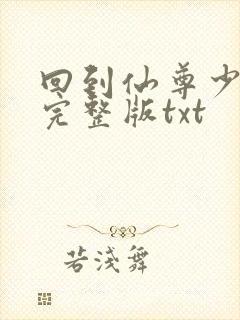 回到仙尊少
完整版txt
若浅舞